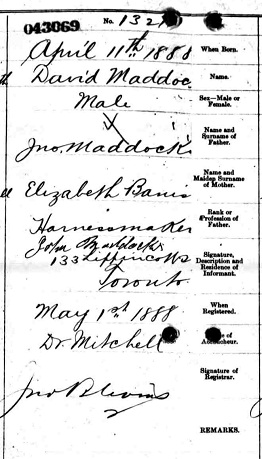 043069
No. 132
April 11th 1888 When Born.
David Maddoc Name.
Male Sex—Male or Female.
Jno. Maddock Name and Surname of Father.
Elizabeth Name and Maiden Surname of Mother.
Harnessmaker Rank or Profession of Father.
John Maddock
133 Lippincott
Toronto
Signature, Description and Residence of Informant.
May 1st 1888 When Registered.
Dr. Mitchell of Accoucheur.
Jno Blevins Signature of Registrar.
REMARKS.